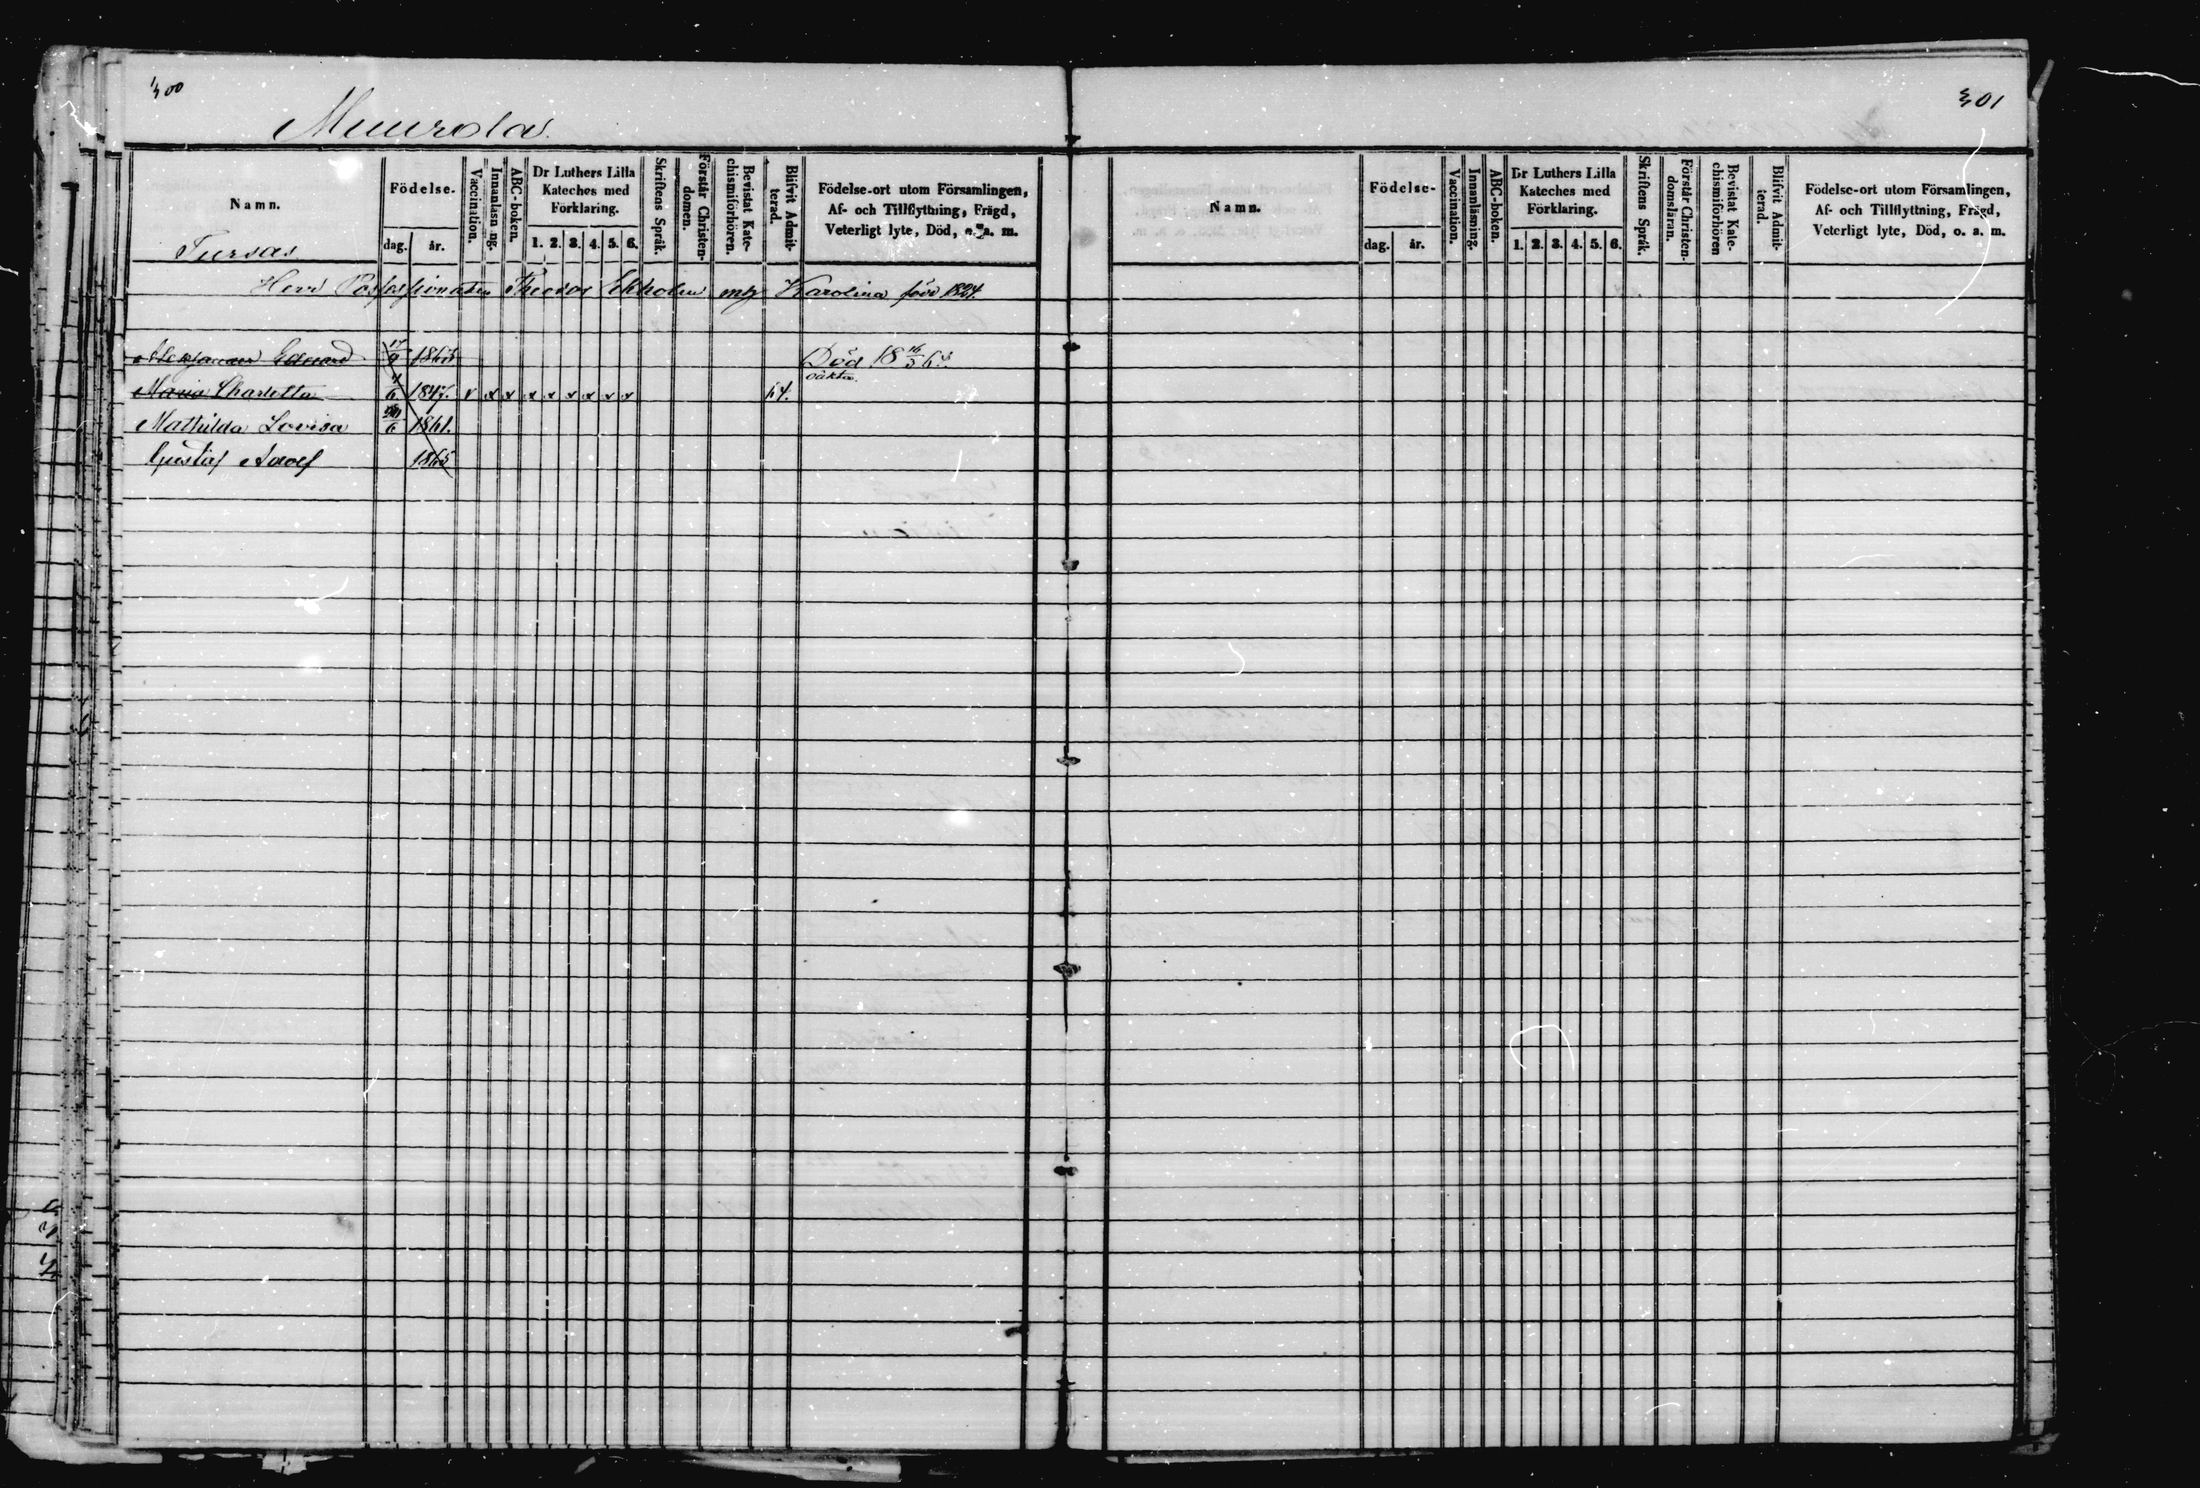 300
Muurola.
Namn.
Födelse-
dag. år.
Vaccination.
Innanläsning.
ABC-boken.
Dr Luthers Lilla
Kateches med
Förklaring.
1. 2. 3. 4. 5. 6.
Skriftens Språk.
Förstår Christen-
domen.
Bevistat Kate-
chismiförhören.
Blifvit Admit-
terad.
Födelse-ort utom Församlingen,
Af- och Tillflyttning, Frägd,
Veterligt lyte, Död, o. a. m.
Tursas
Herr Possessionaten Theodor Ekholm Karolina född 1824.
Alexander Eduard 17/9 1863 Död 18 16/3 63
oäkta
Maria Charlotta 4/6 1847. v x x x x x x x x 64.
Mathilda Lovisa 20/6 1861.
Gustaf Adolf 1865
301
Namn.
Födelse-
dag. år.
Vaccination.
Innanläsning.
ABC-boken.
Dr Luthers Lilla
Kateches med
Förklaring.
1. 2. 3. 4. 5. 6.
Skriftens Språk.
Förstår Christen-
domsläran.
Bevistat Kate-
chismiförhören
Blifvit Admit-
terad.
Födelse-ort utom Församlingen,
Af- och Tillflyttning, Frägd,
Veterligt lyte, Död, o. a. m.